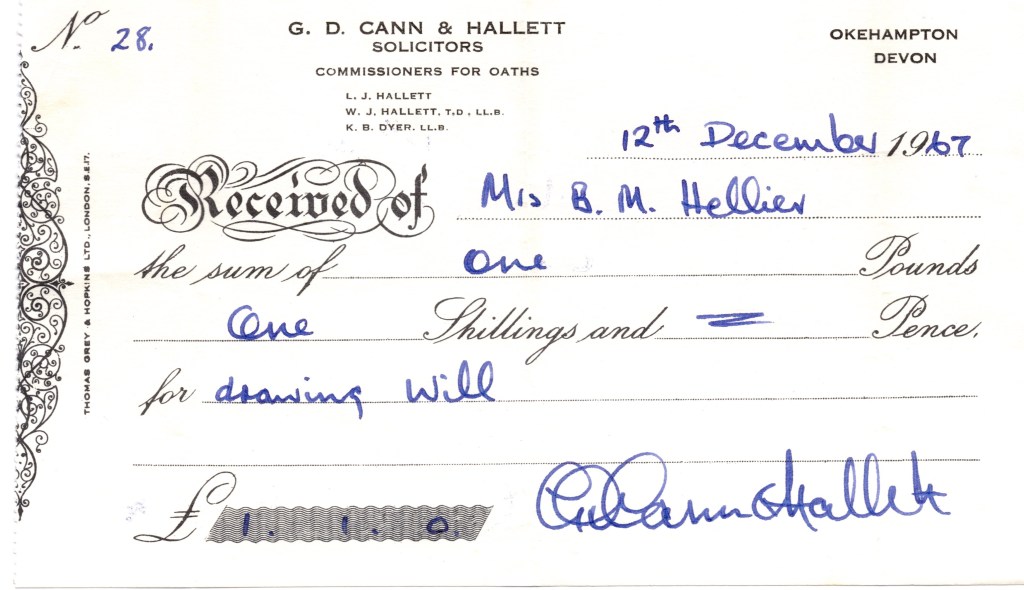 No. 28.
G. D. CANN & HALLETT
SOLICITORS
COMMISSIONERS FOR OATHS
L. J. HALLETT
W. J. HALLETT, T.D., LL.B.
K. B. DYER. LL.B.
OKEHAMPTON
DEVON
12th December 1967
Received of Mrs B. M. Hellier
the sum of One Pounds
One Shillings and = Pence.
for drawing Will
£ 1. 1. 0.
G D Cann & Hallett
THOMAS GREY & HOPKINS LTD., LONDON, S.E.17.